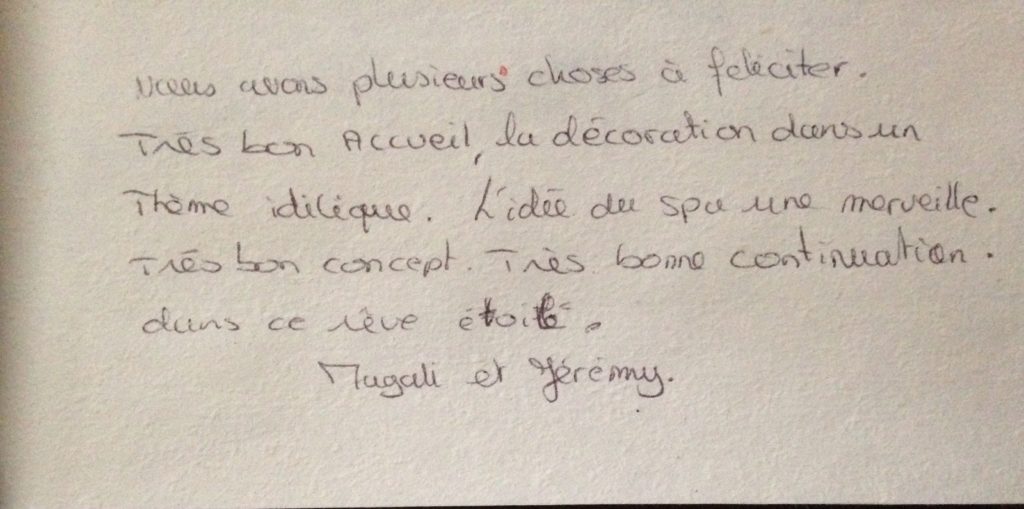 Nous avons plusieurs choses à féliciter.
Très bon Accueil, la décoration dans un
Thème idiléque. L'idée du spa une merveille.
Très bon concept. Très bonne continuation.
dans ce rêve étoilé.
Magali et Jérémy.